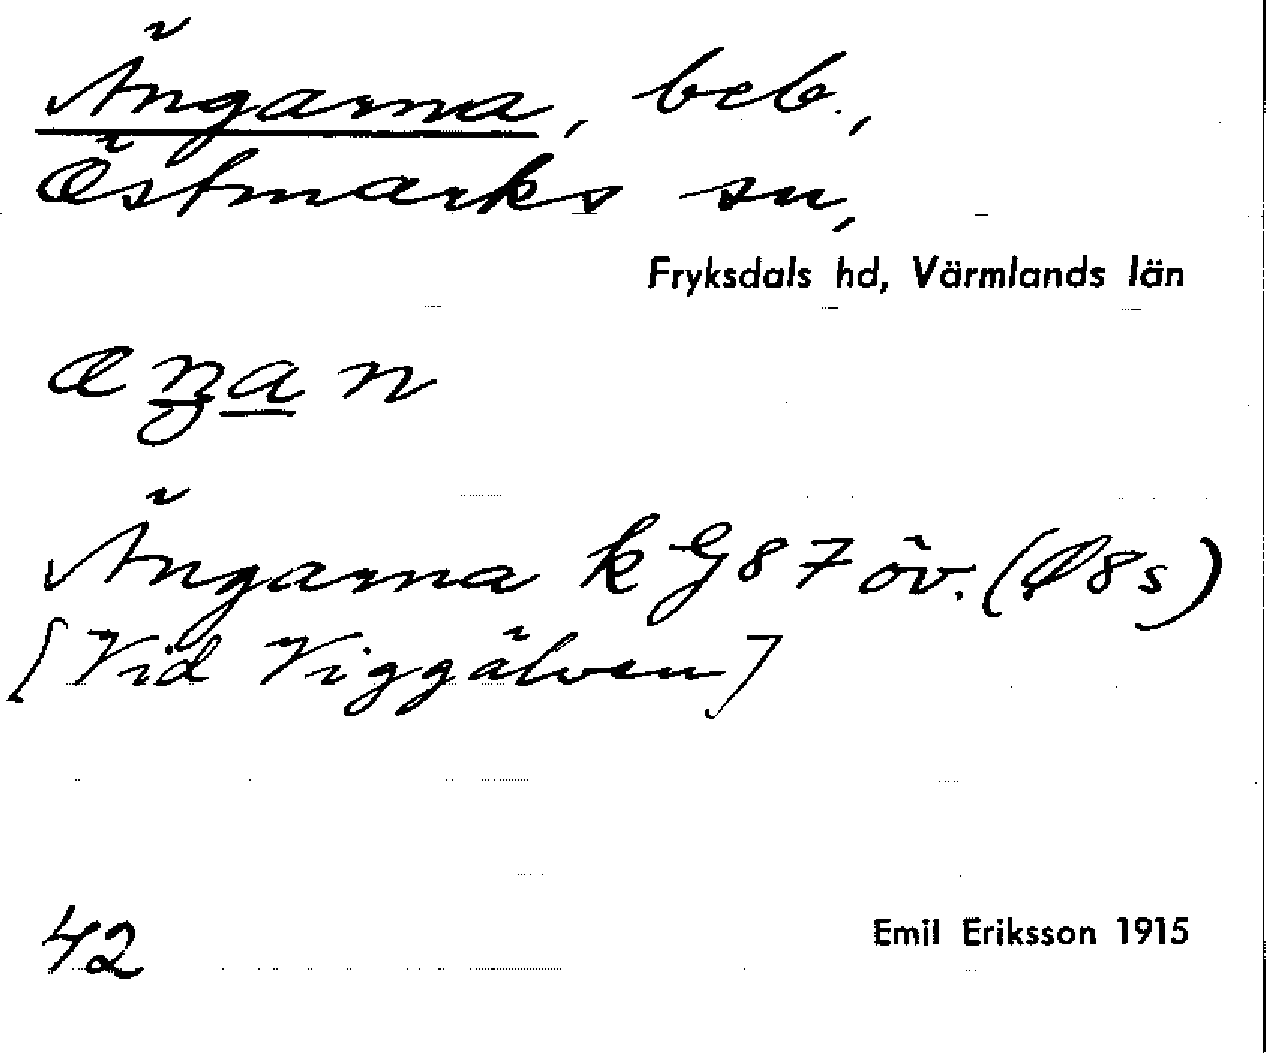 Ängarna, beb.,
Östmarks sn,
Fryksdals hd, Värmlands län
Ängarna k G87 öv. (Ø8s)
[Vid Viggälven]
42
Emil Eriksson 1915